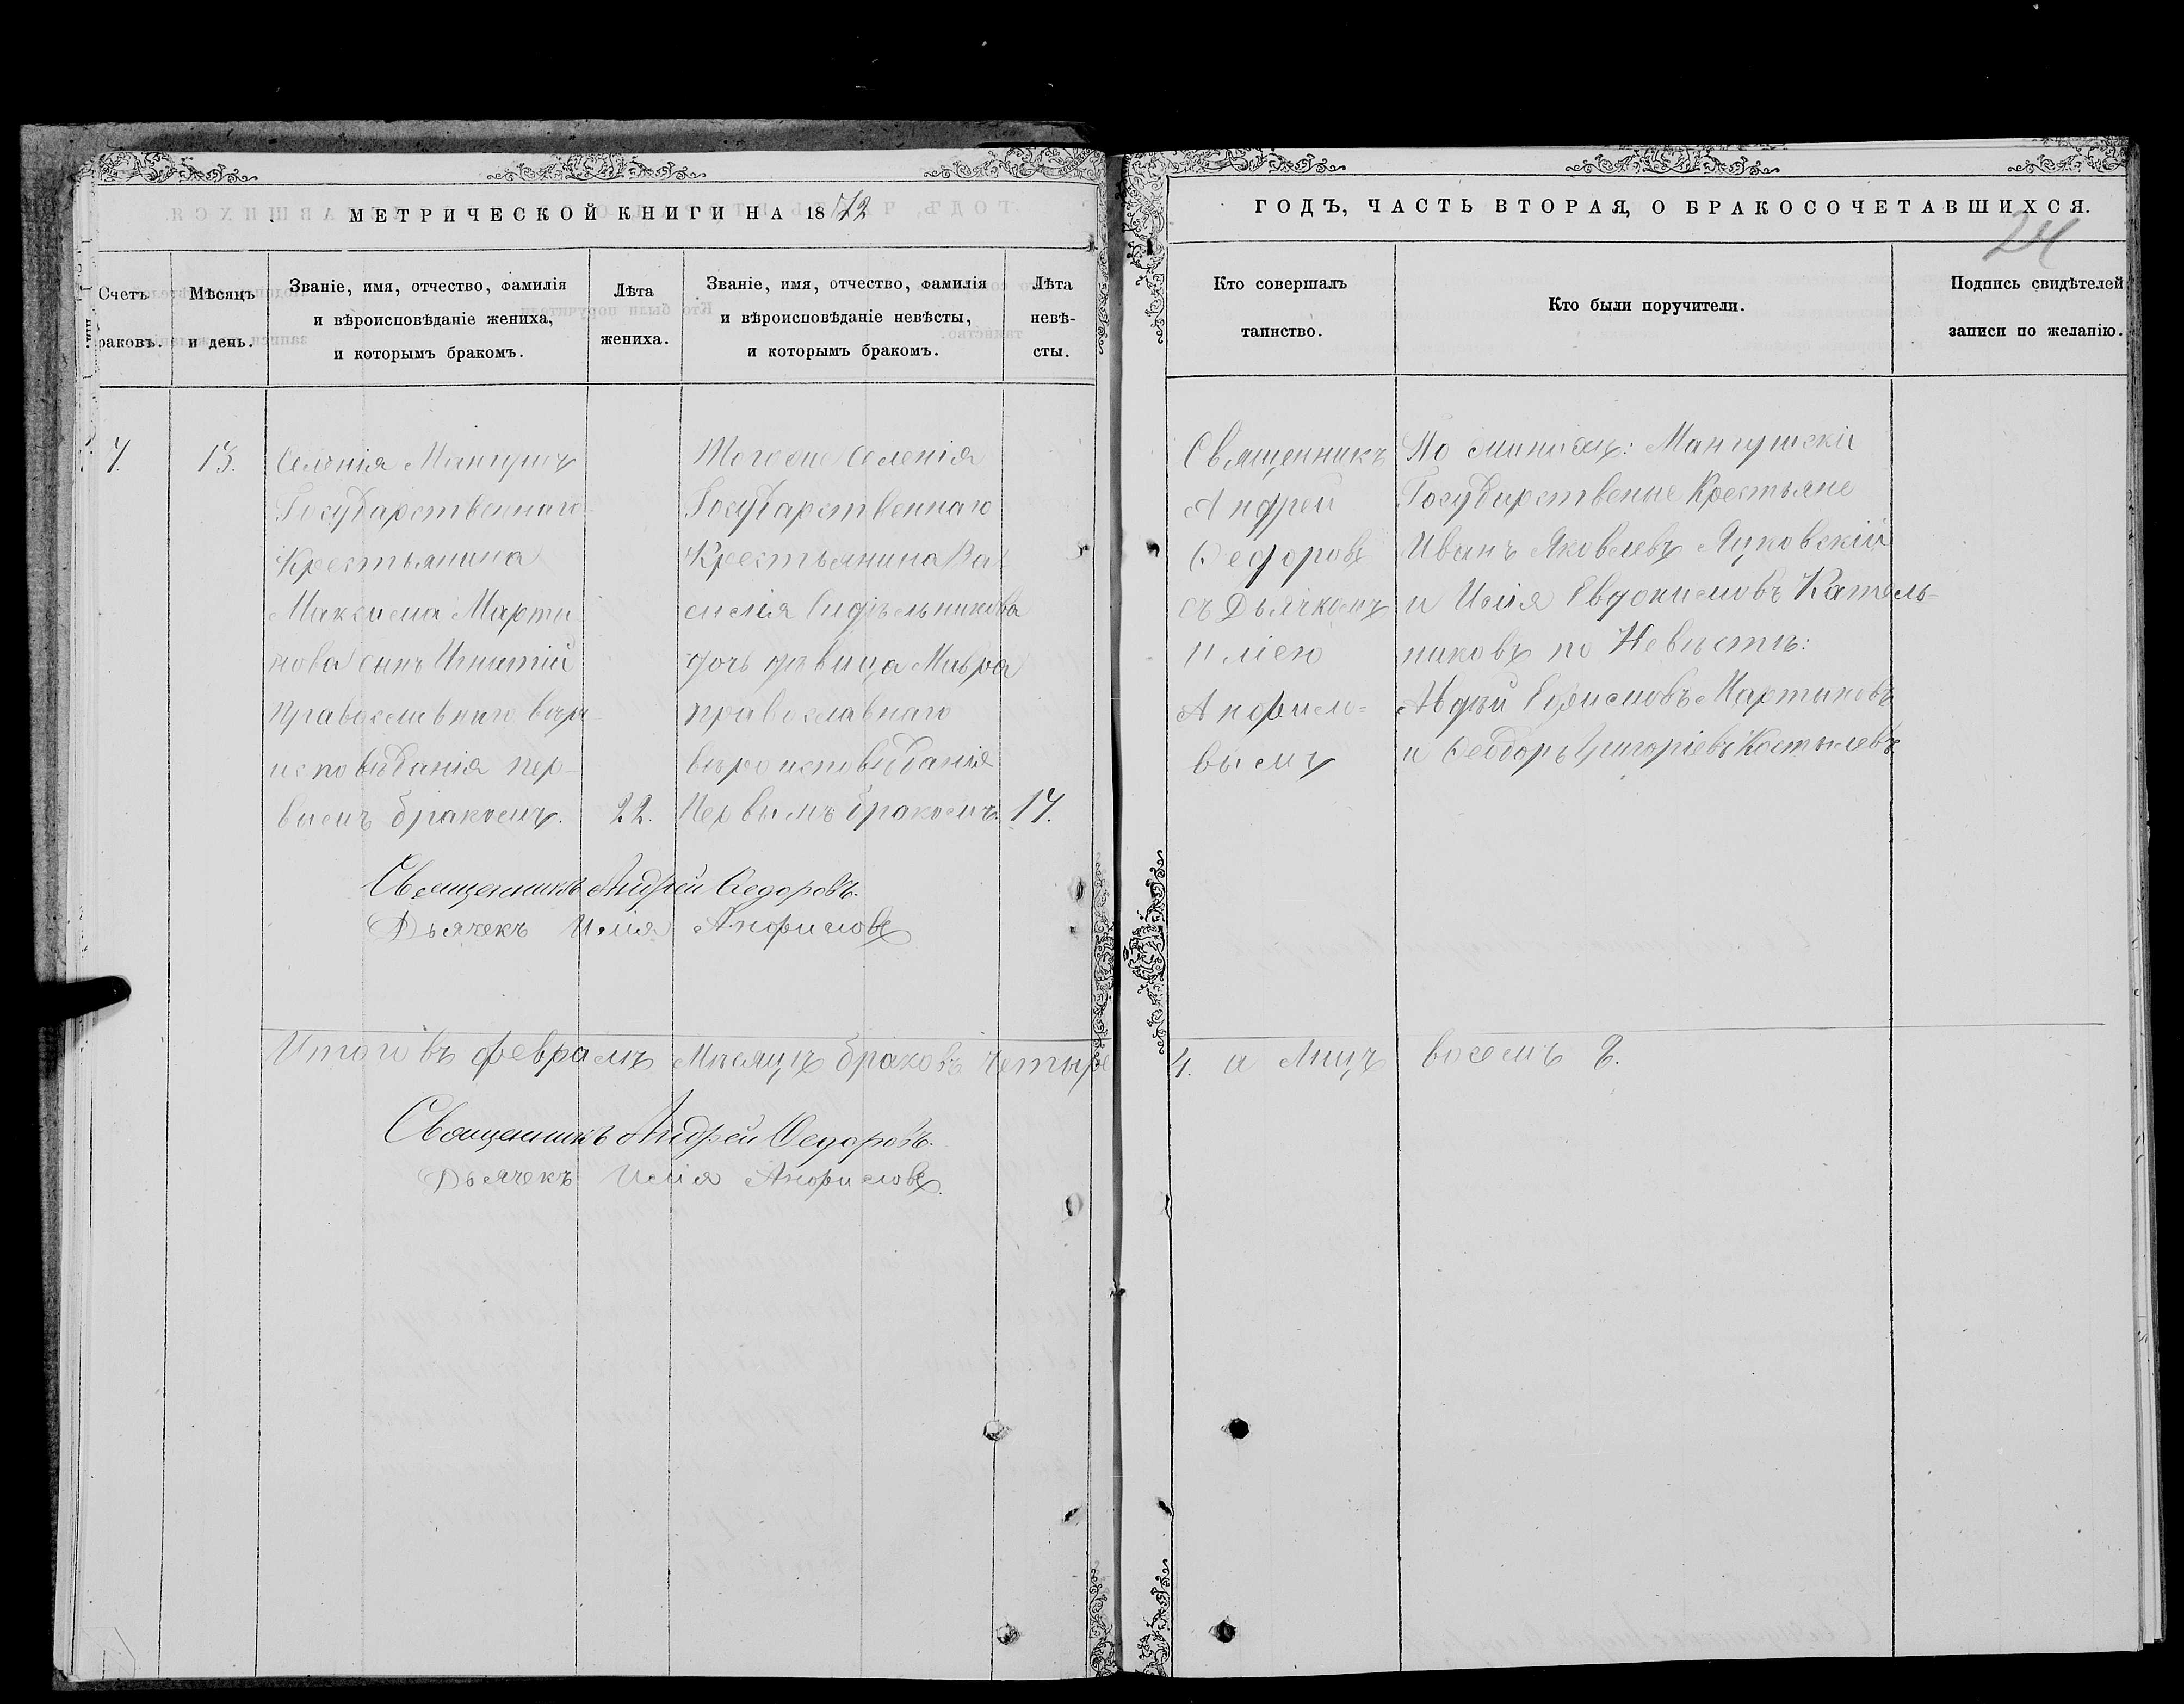 МЕТРИЧЕСКОЙ КНИГИ НА 1872
ГОДЪ, ЧАСТЬ ВТОРАЯ, О БРАКОСОЧЕТАВШИХСЯ.
24
Счетъ
раковъ.
Мѣсяцъ
и день.
Званіе, имя, отчество, фамилія
и вѣроисповѣданіе жениха,
и которымъ бракомъ.
Лѣта
жениха.
Званіе, имя, отчество, фамилія
и вѣроисповѣданіе невѣсты,
и которымъ бракомъ.
Лѣта
невѣ-
сты.
Кто совершалъ
таинство.
Кто были поручители.
Подпись свидѣтелей
записи по желанію.
13.
Селенія Мангушъ
Государственнаго
Крестьянина
Максима Марти
нова сынъ Игнатій
Православнаго вѣро
исповѣданія пер-
вымъ бракомъ.
22.
Тогоже Селенія
Государственнаго
Крестьянина Ва
силія Сидѣльникова
дочь дѣвица Мавра
православнаго
вѣроисповѣданія
Первымъ бракомъ.
17.
Священникъ
Андрей
Ѳедоровъ
съ Дьячкомъ
Иліею
Анфимо-
вымъ
По женихѣ: Мангушскіе
Государственые Крестьяне
Иванъ Яковлевъ Яцковскій
и Илія Евдокимовъ Катель-
никовъ по Невѣстѣ:
Авдѣй Ефимовъ Мартиновъ
и Ѳеодоръ Григоріевъ Костылевъ
Священникъ Андрей Ѳедоровъ.
Дьячекъ Илія Анфимовъ
Итого въ февралѣ Мѣсяцѣ браковъ четыре 4. а Лицъ восемъ 8.
Священникъ Андрей Ѳедоровъ.
Дьячекъ Илія Анфимовъ.